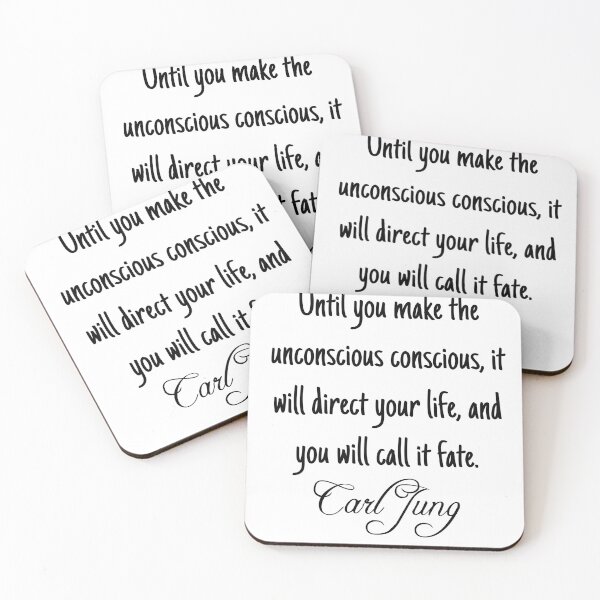 Until you make the
unconscious conscious, it
will direct your life,
Until you make the
unconscious conscious, it
will direct your life, and
you will call it fate.
Until you make the
unconscious conscious, it
will direct your life, and
you will call it
Carl
Until you make the
unconscious conscious, it
will direct your life, and
you will call it fate.
Carl Jung